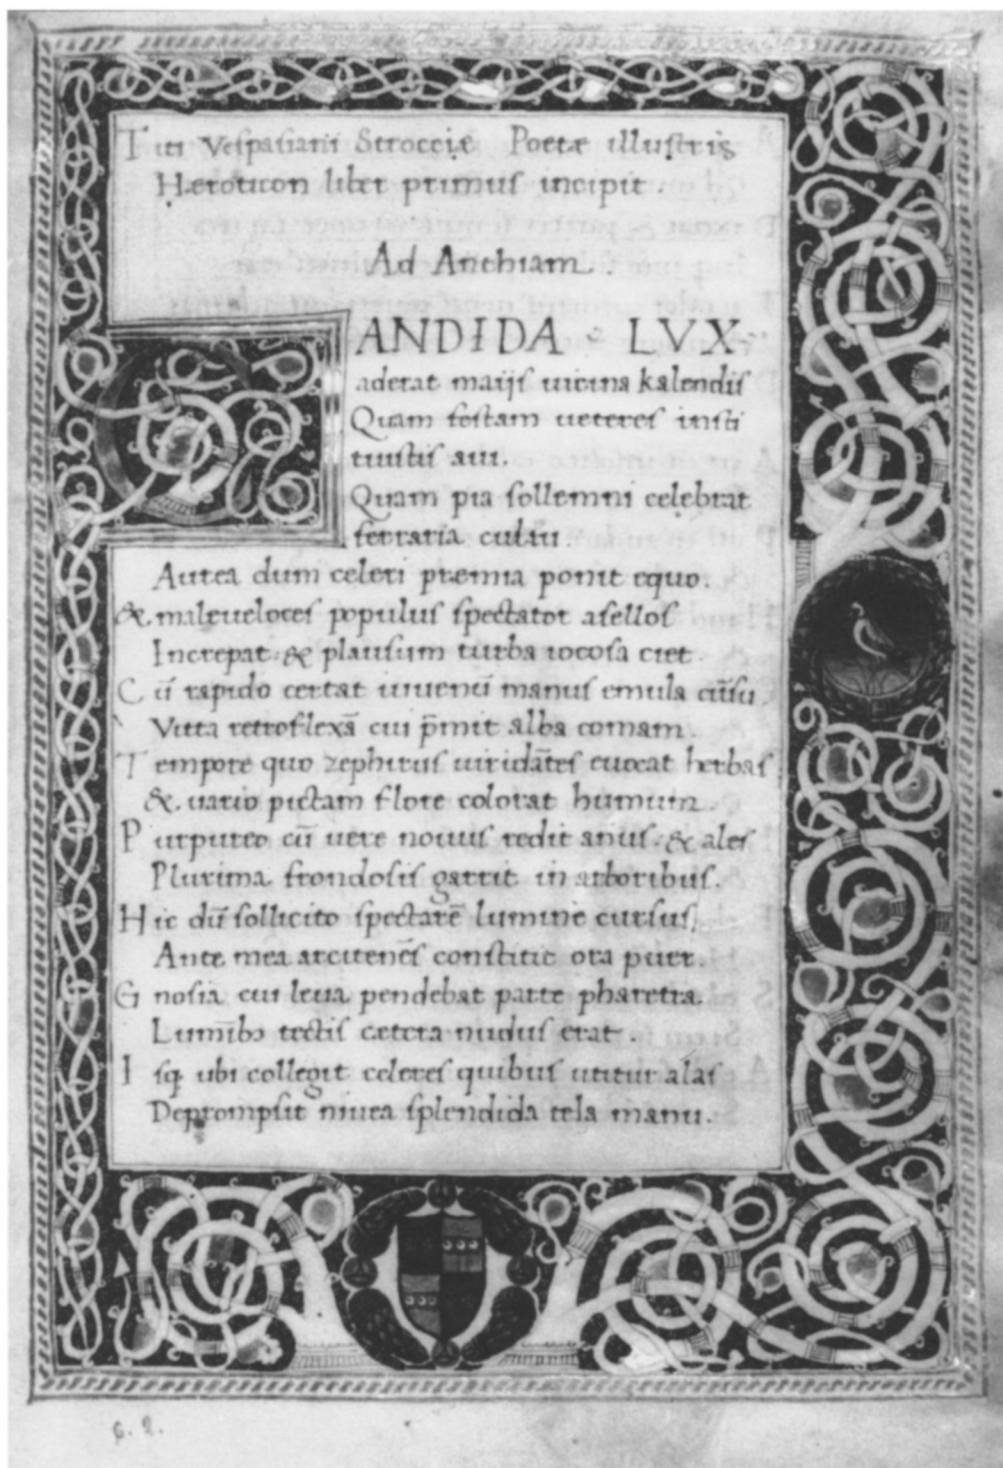 Titi Vespasiani Stroccię Poetæ illustris
Hæroticon liber primus incipit.
Ad Anthiam.
CANDIDA LVX
aderat maijs uicina kalendis
Quam festam ueteres insti
tuistis aui.
Quam pia sollemni celebrat
ferraria cultu.
Aurea dum celeri præmia ponit equo.
& maleueloces populus spectator asellos
Increpat. & plausum turba iocosa ciet.
Cū rapido certat iuuenū manus emula cursu
Vitta retroflexā cui p̄mit alba comam.
Tempore quo zephirus uiridātes euocat herbas
& uario pictam flore colorat humum.
Purpureo cū uere nouus redit anus. & ales
Plurima frondosis garrit in arboribus.
Hic dū sollicito spectarē lumine cursus
Ante mea arcitenēs constitit ora puer.
Gnosia cui leua pendebat parte pharetra.
Lumīb₉ tectis cætera nudus erat.
Isq ubi collegit celeres quibus utitur alas
Deprompsit niuea splendida tela manu.
6. 2.